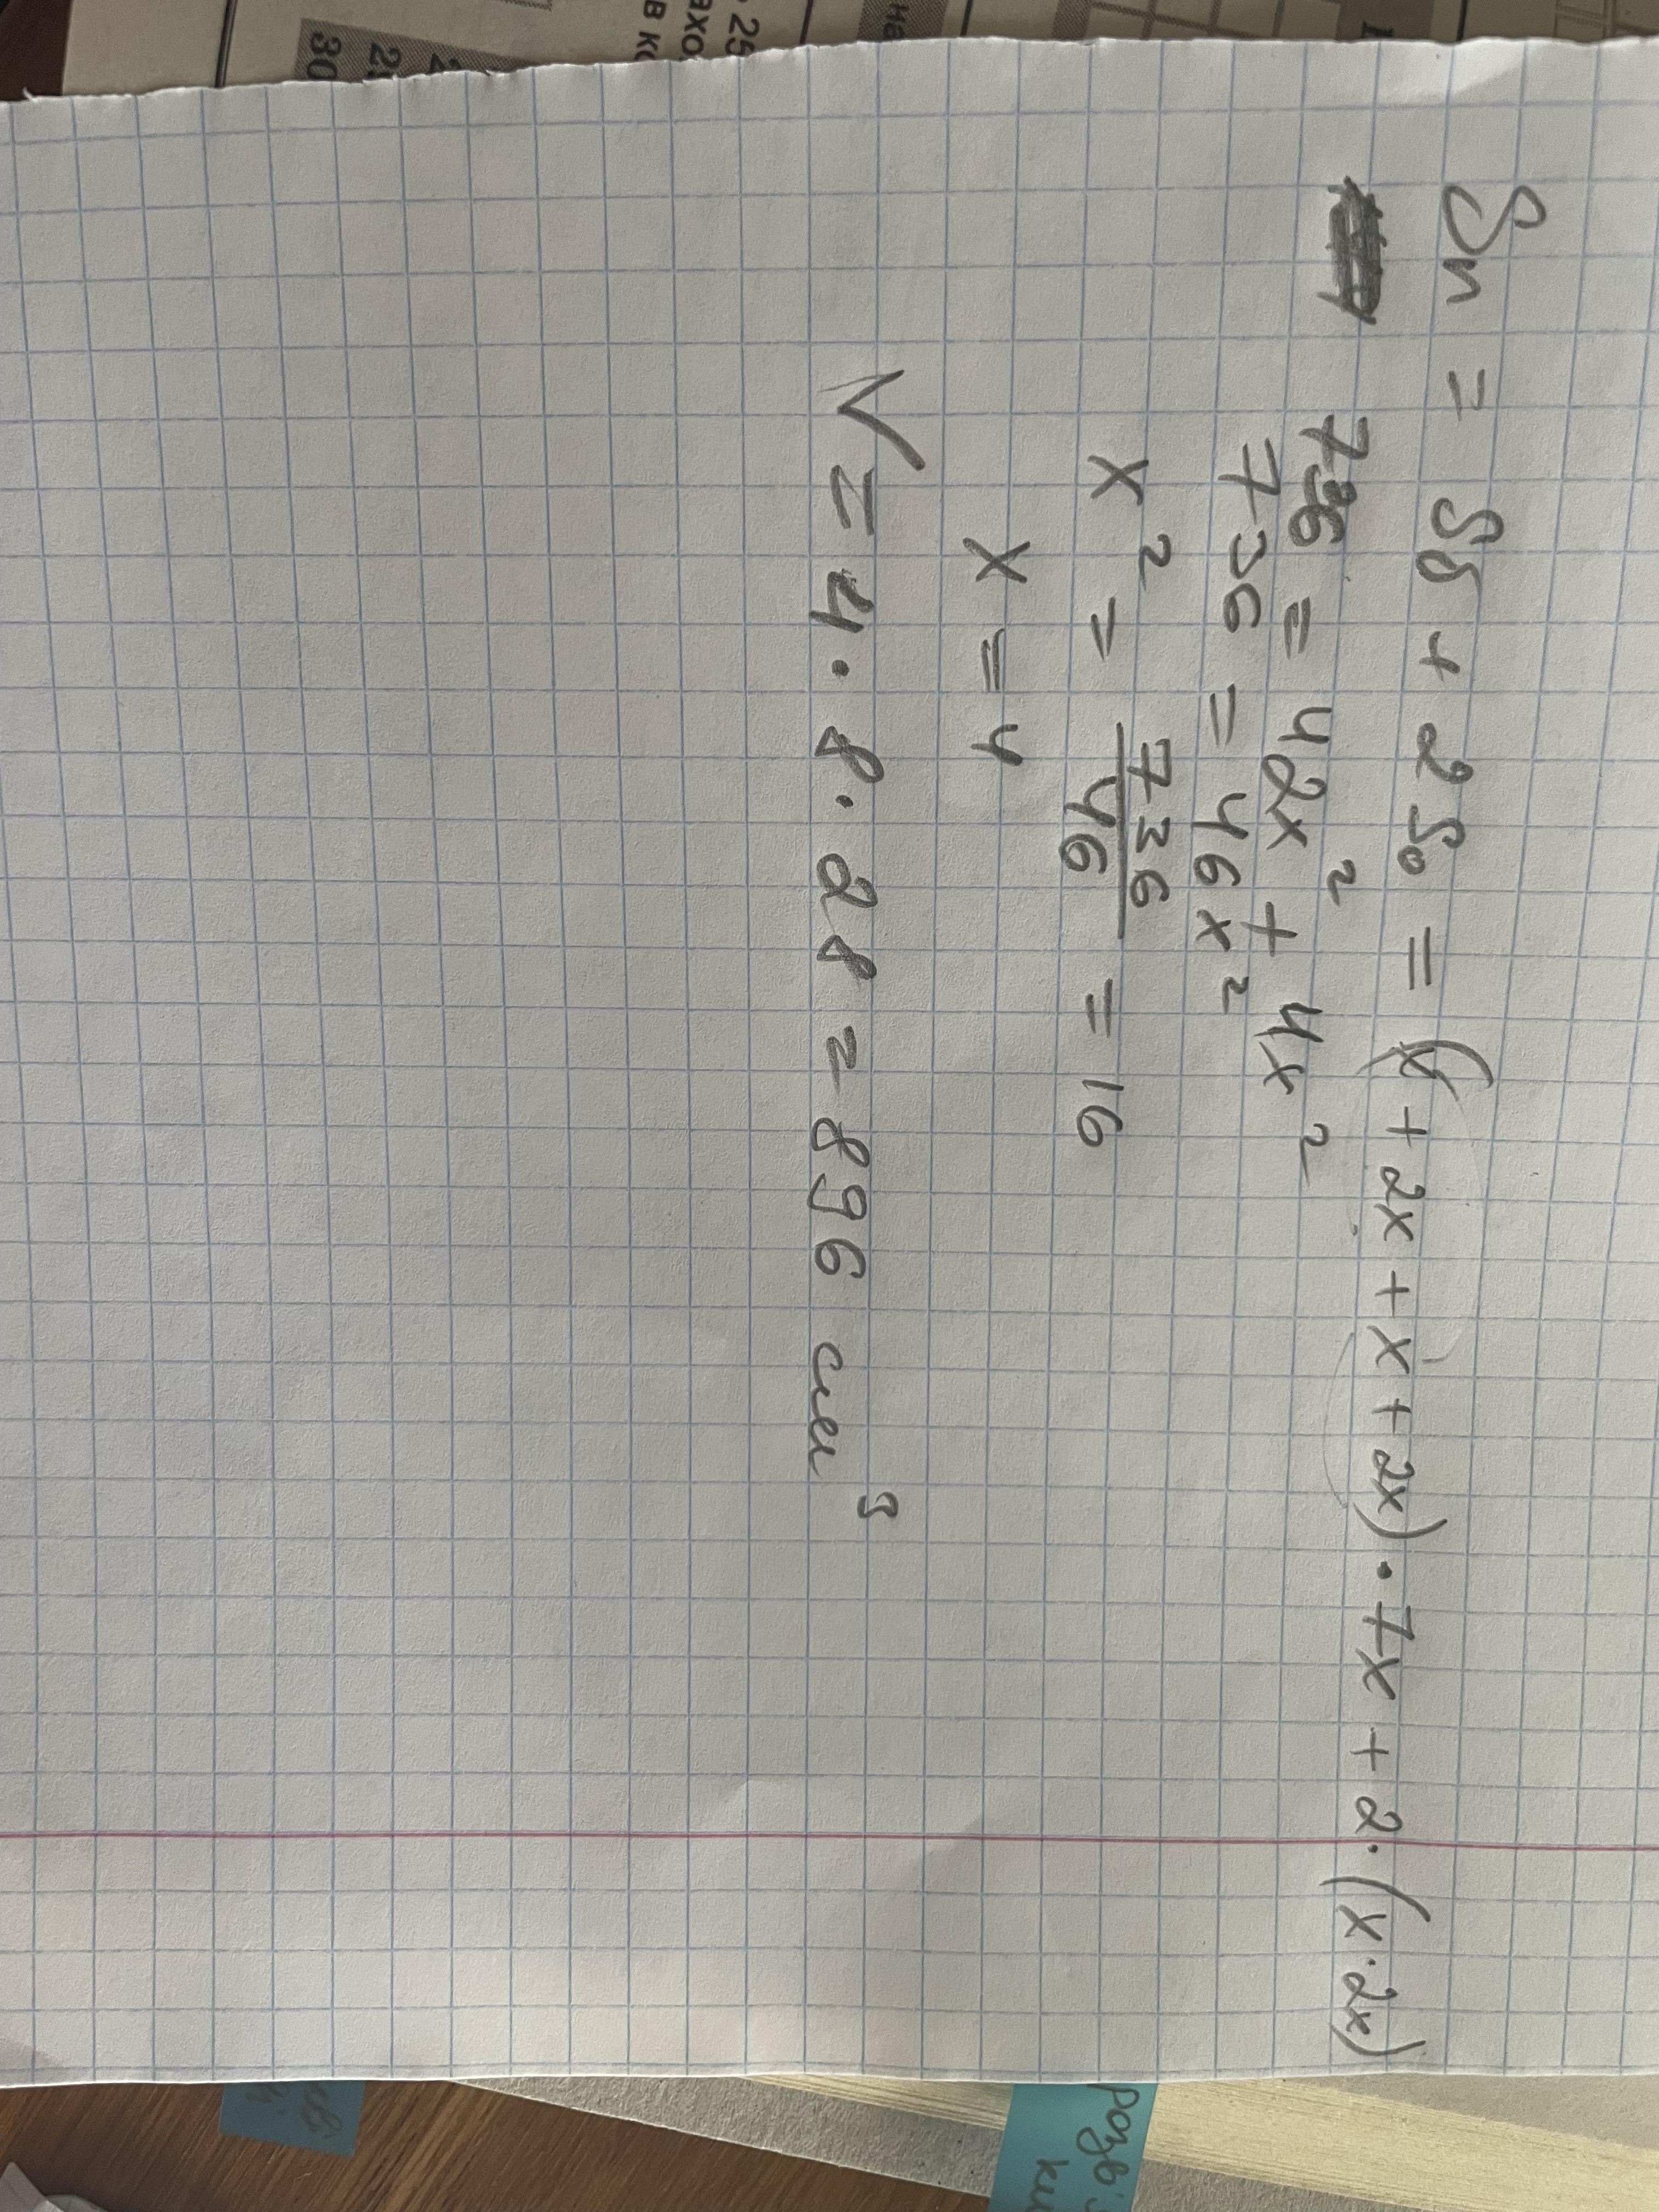 Sп = Sб + 2So = (x + 2x + x + 2x) · 7x + 2 · (x · 2x)
736 = 42x² + 4x²
736 = 46x²
x² = 736/46 = 16
x = 4
V = 4 · 8 · 28 = 896 см³
25
30